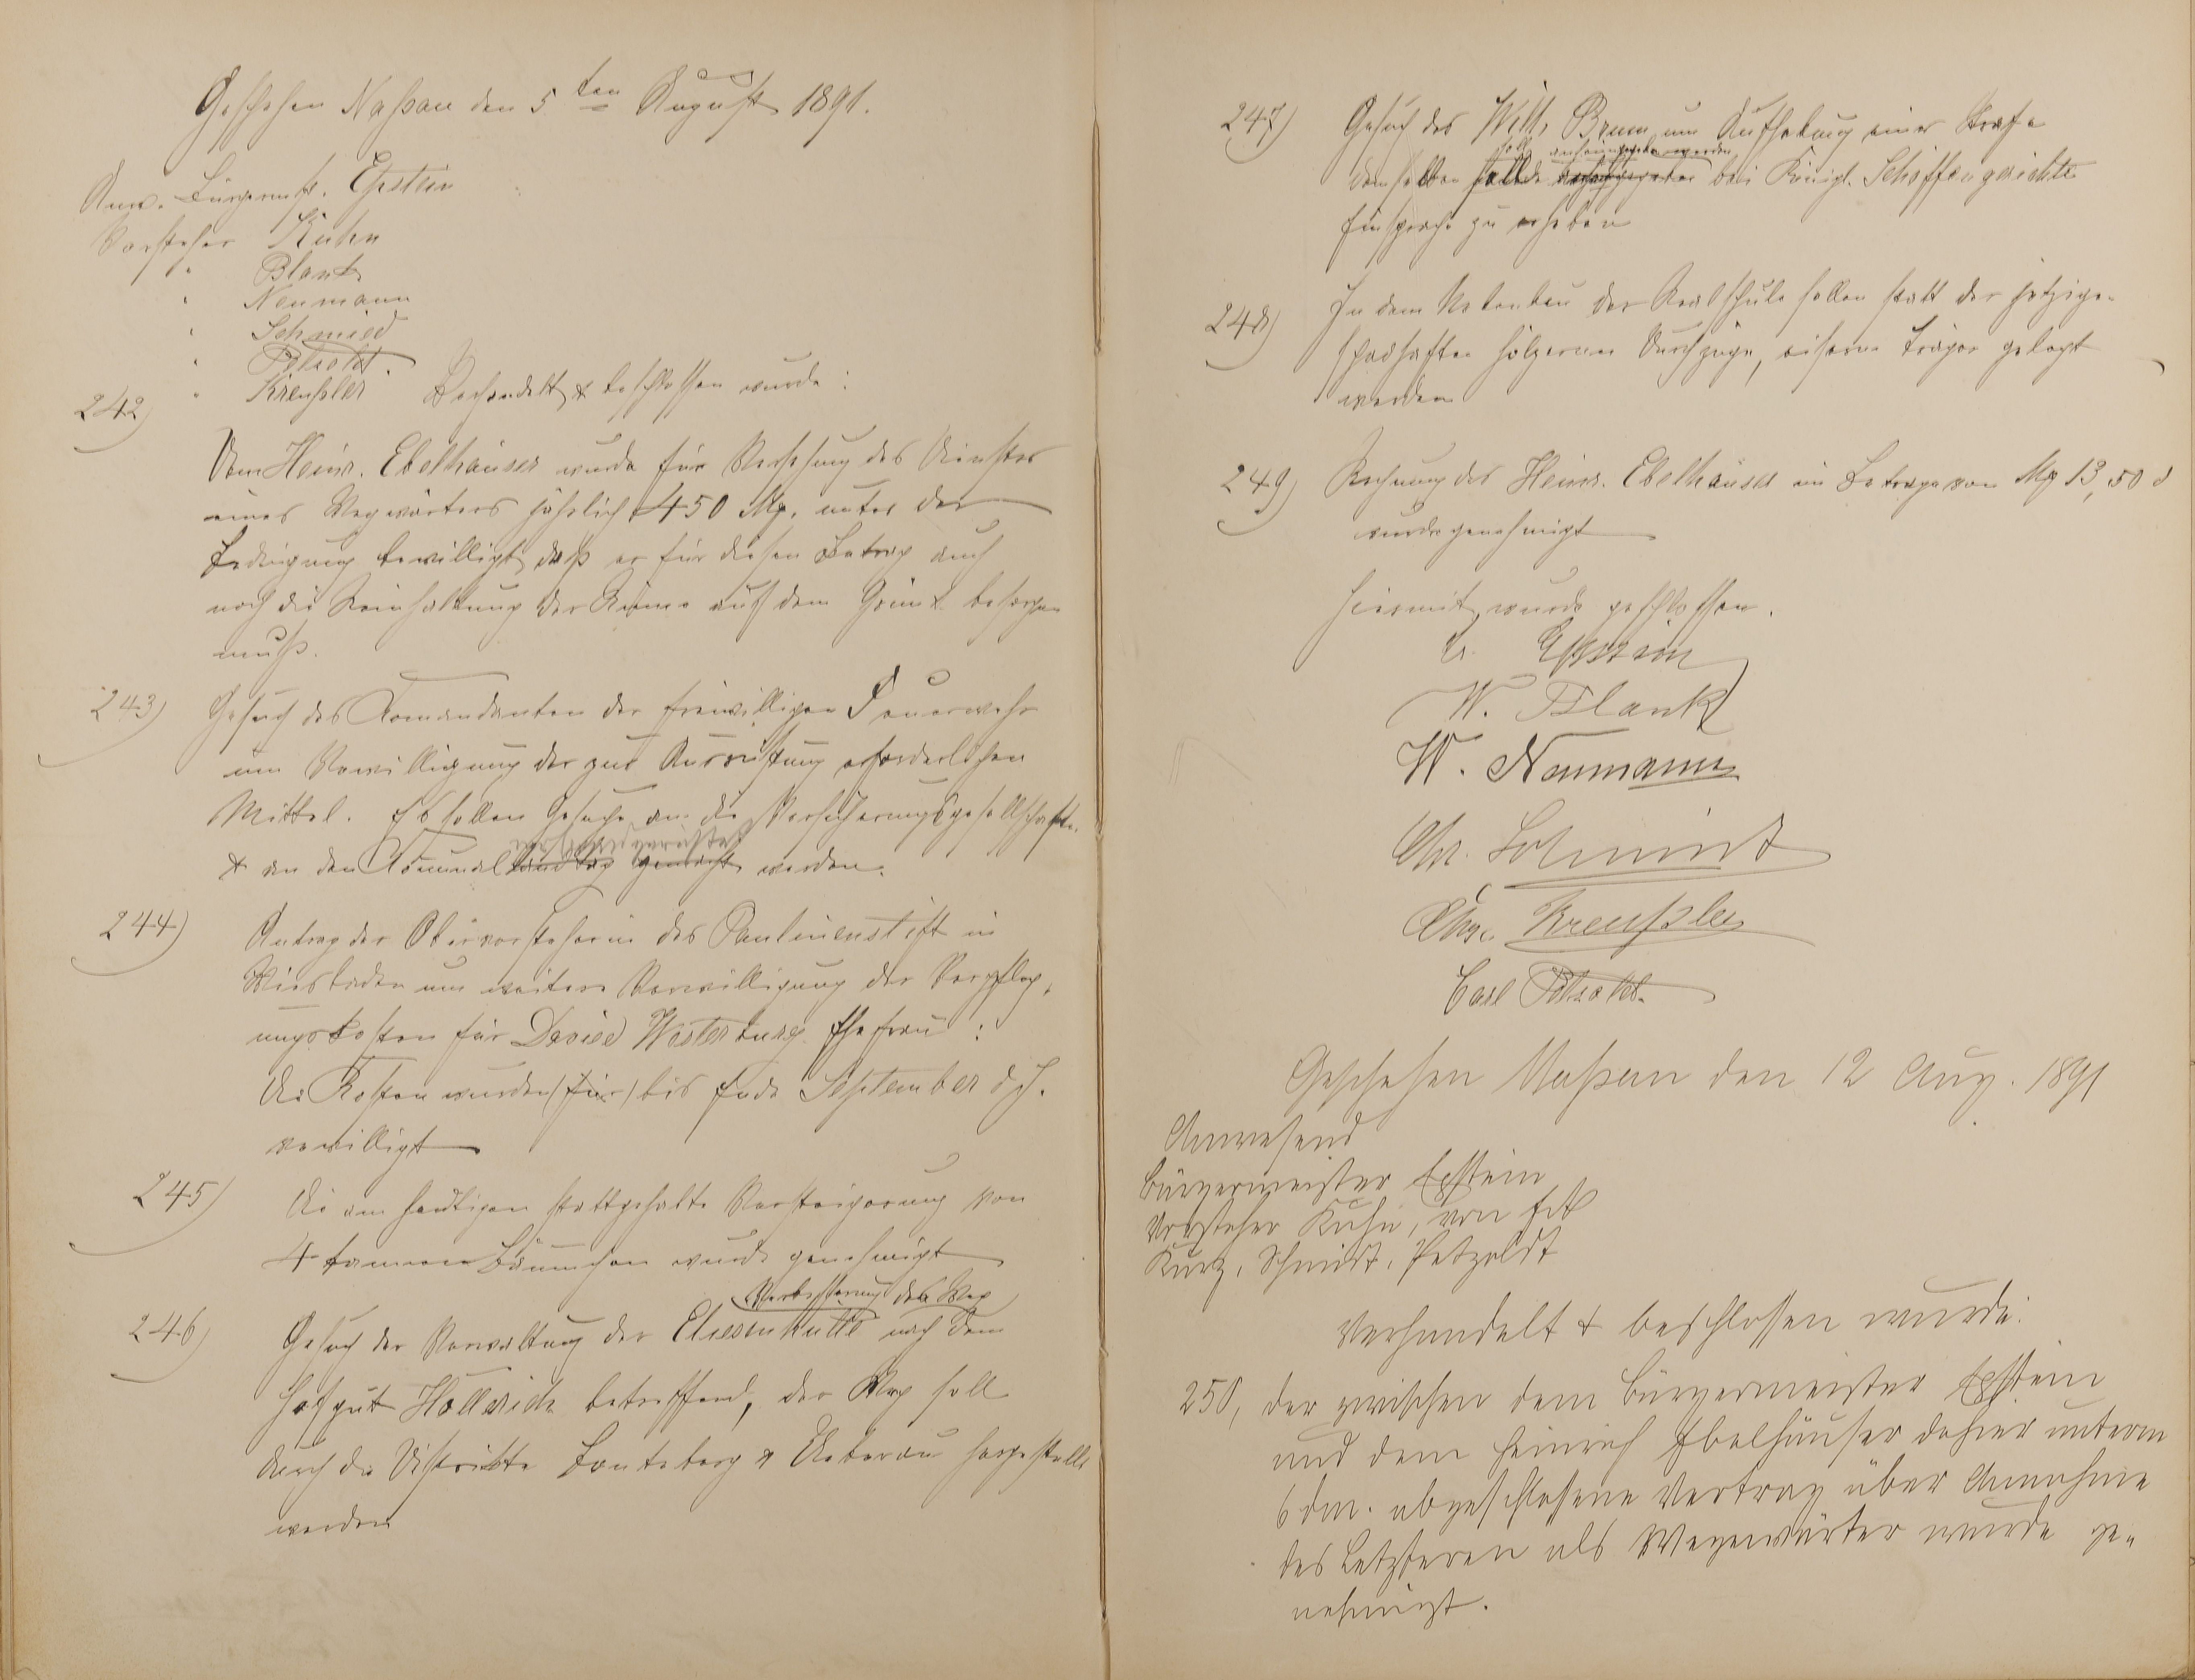 Geschehen Naßau den 5ten August 1891.
Anw. Bürgermst. Epstein
Vorsteher Kuhn
" Blank
" Neumann
" Schmied
" Petzoldt.
" Kreußler Verhandelt & beschlossen wurde:
242) Dem Heinr. Ebelhäuser wurde für Versehung des Dienstes
eines Wegwärters jährlich 450 Mg. unter der
Bedingung bewilligt, daß er für diesen Betrag auch
noch die Reinhaltung der Rinne auf dem Grünt besorgen
muß.
243) Gesuch des Comandanten der freiwilligen Feuerwehr
um Verwilligung der zur Ausrüstung erforderlichen
Mittel. Es sollen Gesuche an die Versicherungsgesellschaften
& an den Comunallandtag gemacht werden.
244) Antrag der Obervorsteherin des Paulinenstift in
Wiesbaden um weitere Verwilligung der Verpfleg-
ungskosten für David Westerburg Ehefrau:
Die Kosten wurden (für) bis Ende September d. J.
verwilligt
245) Die am heutigen stattgehabte Versteigerung von
4 tannen Bäumchen wurde genehmigt
Verbesserung des Weg
246) Gesuch der Verwaltung der Elisenhütte nach dem
Hofgut Hollerich betreffend, der Weg soll
durch die Distrikte & hergestellt
werden
247) Gesuch des Wilh. Brum um Aufhebung einer Strafe
soll anheimgegeben werden
demselben bei Königl. Schöffengerichte
Einsprache zu erheben
248) In dem Nebenbau der Realschule sollen statt der jetzigen
schadhaften hölzernen Durchzüge, eiserne Träger gelegt
werden
249) Rechnung des Heinr. Ebelhäuser im Betrage von Mg 13,50 d
wurde genehmigt
Hiermit wurde geschlossen.
Epstein
W. Blank
W. Neumann
Chr. Schmidt
Chr. Kreußler
Carl Petzoldt.
Geschehen Naßau den 12 Aug. 1891
Anwesend
Bürgermeister Epstein
Vorsteher Kuhn, von
Kurz, Schmidt, Petzoldt
Verhandelt & beschlossen wurde:
250, der zwischen dem Bürgermeister Epstein
und dem Heinrich Ebelhäuser dahier unterm
6 dM. abgeschlossene Vertrag über Annahme
des Letzteren als Wegewärter wurde ge-
nehmigt.